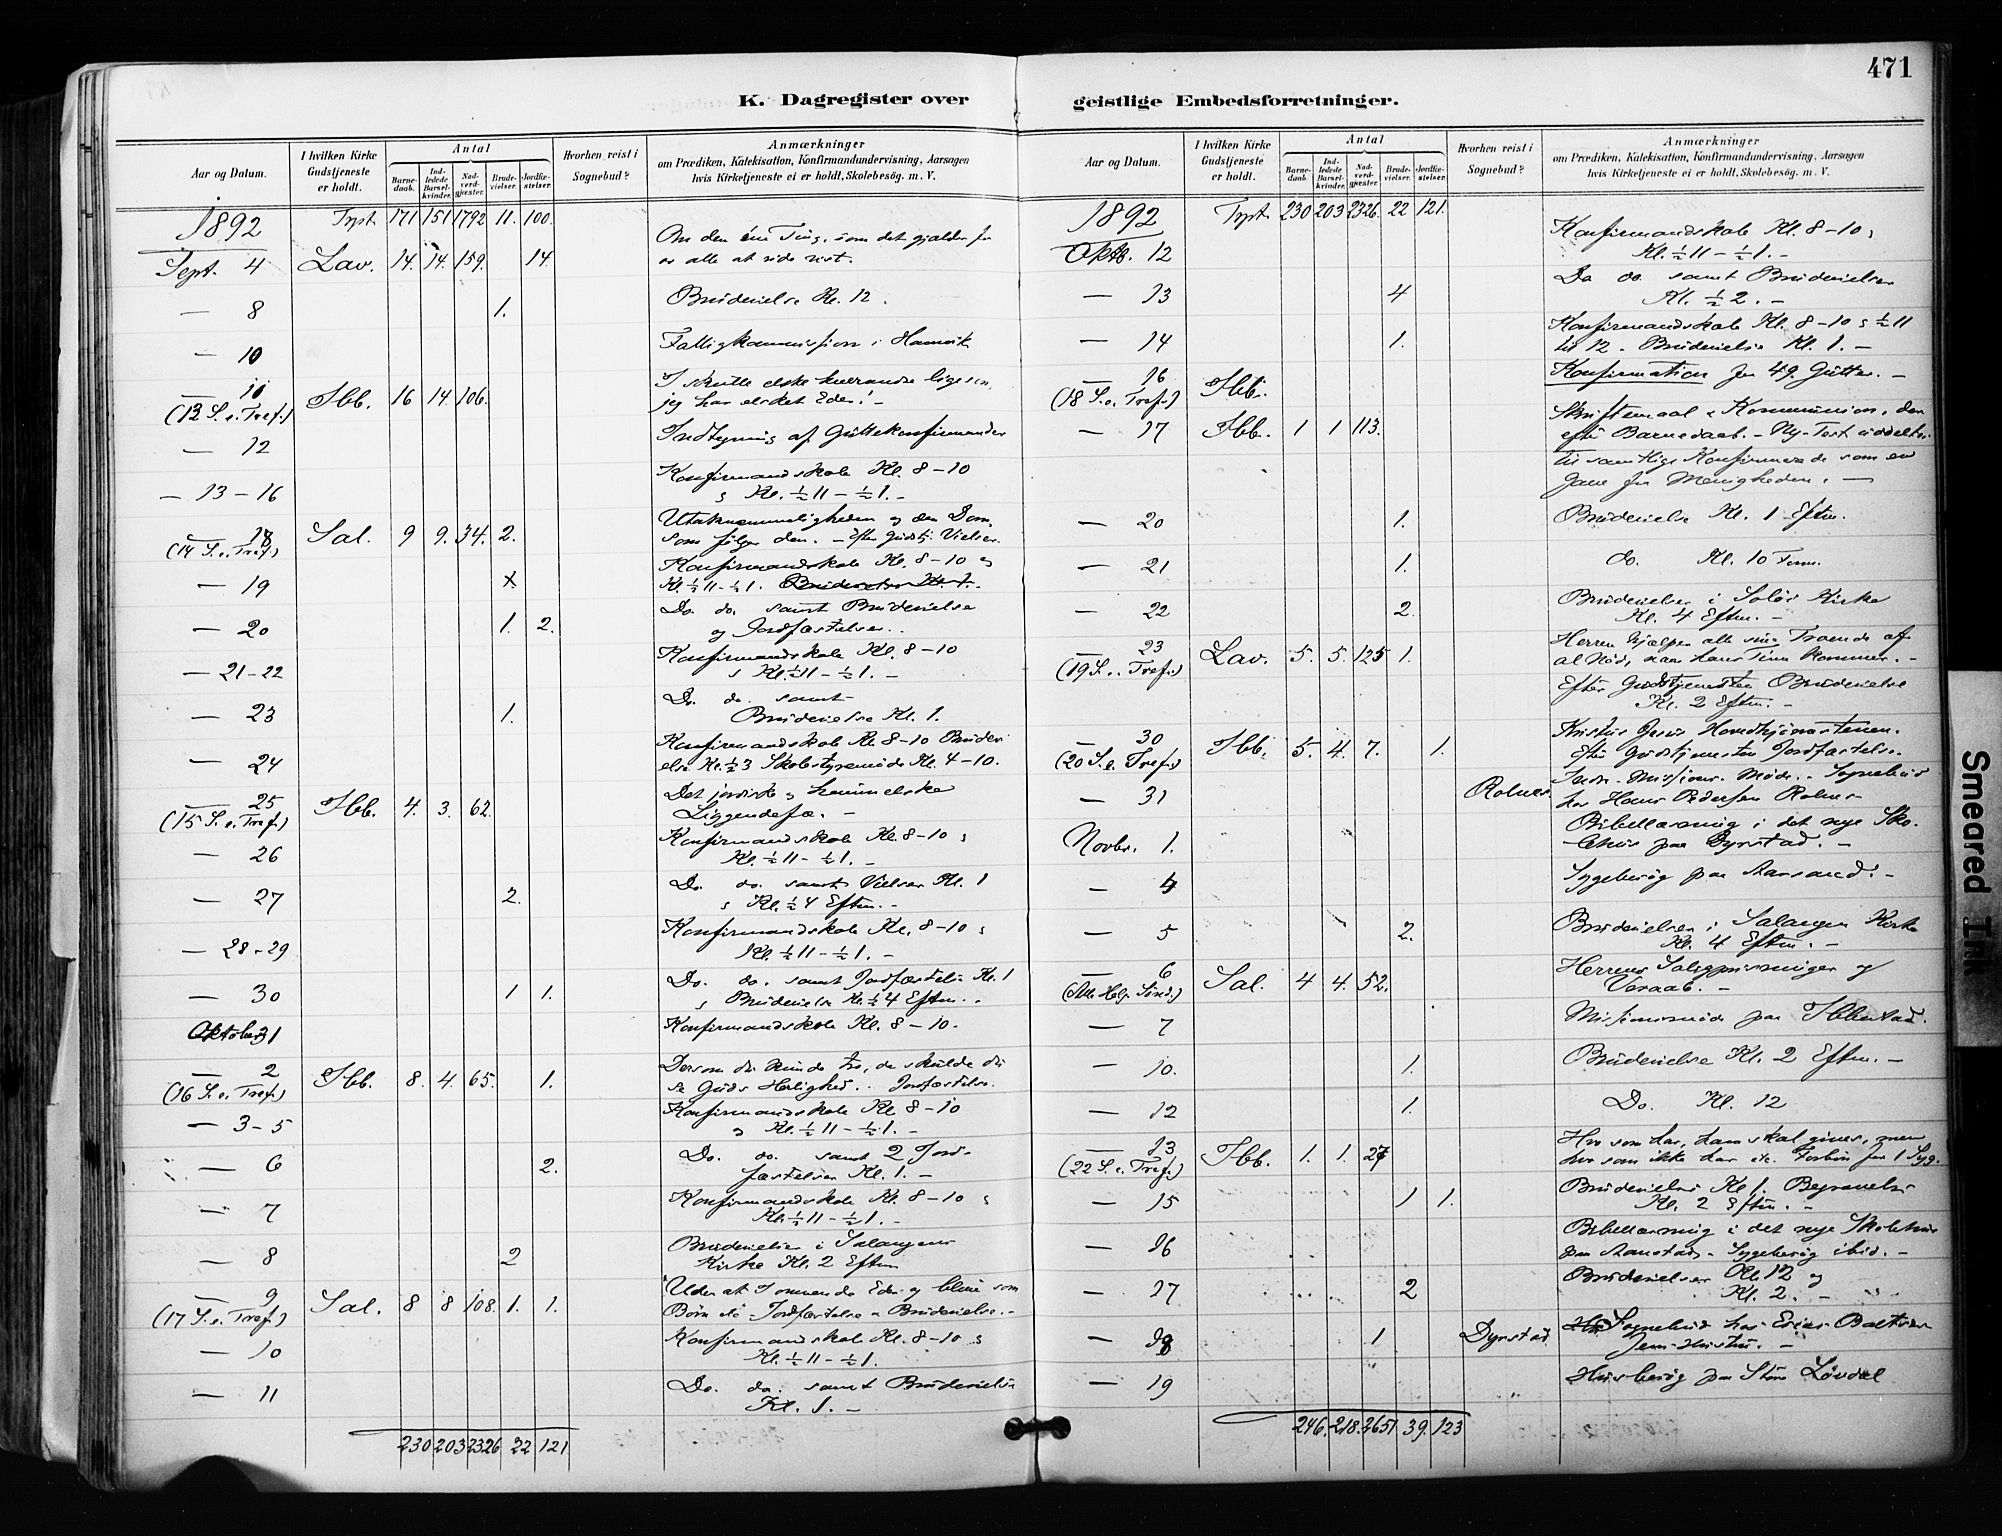 471
K. Dagregister over
geistlige Embedsforretninger.
Aar og Datum.
I hvilken Kirke Gudstjeneste er holdt.
Antal
Barne-daab.
Ind-ledede Barsel-kvinder.
Nad-verd-gjester.
Brude-vielser.
Jordfæ-stelser.
Hvorhen reist i Sognebud?
Anmærkninger
om Prædiken, Katekisation, Konfirmandundervisning, Aarsagen
hvis Kirketjeneste ei er holdt, Skolebesøg. m. V.
1892 Trpt. 171 151 1792 11. 100.
Sept. 4 Lav. 14. 14. 159. 14. Om den ene Ting, som det gjælder for
os alle at vide vist.
— 8 1. Brudevielse Kl. 12.
— 10 Fattigkommission i Hamvik
— 11 I skulle elske hverandre ligesom
(13 S. e. Tref.) Ibb. 16 14. 106. jeg har elsket Eder! –
— 12 Indtegning af Guttekonfirmander
— 13 – 16 Konfirmandskole Kl. 8 – 10
& Kl. ½ 11 – ½ 1. –
— 18 Utaknemmeligheden og den Dom,
(14 S. e. Tref.) Sal. 9 9. 34. 2. som følger den. – Efter Gudstj. Vielser.
— 19 x Konfirmandskole Kl. 8 – 10 og
Kl. ½ 11 – ½ 1. Brudevielse Kl. 1.
— 20 1. 2. Do. do. samt Brudevielse
og Jordfæstelser.
— 21 – 22 Konfirmandskole Kl. 8 – 10
& Kl. ½ 11 – ½ 1. –
— 23 1. Do. do. samt
Brudevielse Kl. 1.
— 24 Konfirmandskole Kl. 8 – 10 Brudevi
else Kl. ½ 3 Skolestyremøde Kl. 4 – 10.
— 25 Det jordiske & himmelske
(15 S. e. Tref.) Ibb. 4. 3. 62. Liggendefæ. –
— 26 Konfirmandskole Kl. 8 – 10 &
Kl. ½ 11 – ½ 1. –
— 27 2. Do. do. samt Vielser Kl. 1
& Kl. ½ 4 Eftm. –
— 28 – 29 Konfirmandskole Kl. 8 – 10 &
Kl. ½ 11 – ½ 1. –
— 30 1 1. Do. do. samt Jordfæstelse Kl. 1
& Brudevielse Kl. ½ 4 Eftm.
Oktober 1 Konfirmandskole Kl. 8 – 10.
— 2 Dersom du kunde tro, da skulde du
(16 S. e. Tref.) Ibb. 8. 4. 65. 1. se Guds Herlighed. Jordfæstelse.
— 3 – 5 Konfirmandskole Kl. 8 – 10
& Kl. ½ 11 – ½ 1. –
— 6 2. Do. do. samt 2 Jord-
fæstelser Kl. 1. –
— 7 Konfirmandskole Kl. 8 – 10 &
Kl. ½ 11 – ½ 1. –
— 8 2 Brudevielser i Salangens
Kirke Kl. 2 Eftm
— 9 Uden at I omvende Eder og blive som
(17 S. e. Tref.) Sal. 8 8 108. 1. 1. Børn etc – Jordfæstelse – Brudevielse. –
— 10 Konfirmandskole Kl. 8 – 10 &
Kl. ½ 11 – ½ 1.
— 11 Do. do. samt Brudevielse
Kl. 1. –
230 203 2326 22 121
Aar og Datum.
I hvilken Kirke Gudstjeneste er holdt.
Antal
Barne-daab.
Ind-ledede Barsel-kvinder.
Nad-verd-gjester.
Brude-vielser.
Jordfæ-stelser.
Hvorhen reist i Sognebud?
Anmærkninger
om Prædiken, Katekisation, Konfirmandundervisning, Aarsagen
hvis Kirketjeneste ei er holdt, Skolebesøg. m. V.
1892 Trpt. 230 203 2326 22 121.
Oktb. 12 Konfirmandskole Kl. 8 – 10 &
Kl. ½ 11 – ½ 1. –
— 13 4 Do do. samt Brudevielser
Kl. ½ 2. –
— 14 1. Konfirmandskole Kl. 8 – 10 & ½ 11
til 12 – Brudevielse Kl. 1. –
— 16 (18 S. e. Tref.) Ibb. Konfirmation for 49 Gutter. –
— 17 Ibb. 1 1 113. Skriftemaal & Kommunion, der
efter Barnedaab. – Ny-Test uddeltes
til samtlige Konfirmerede som en
Gave fra Menigheden. –
— 20 1. Brudevielse Kl. 1 Eftm.
— 21 1. do. Kl. 10 Form.
— 22 2. Brudevielser i Kirke
Kl. 4 Eftm. –
— 23 Herren hjælper alle sine Troende af
(19 S. e. Tref.) Lav. 5. 5. 125 1. al Nød, naar hans Time kommer. –
Efter Gudstjenesten Brudevielse
Kl. 2 Eftm. –
— 30 Kristus Jesus Hovedhjørnestenen.
(20 S. e. Tref.) Ibb. 5. 4. 7. 1. Efter Gudstjenesten Jordfæstelse.
— 31 Rolnes. Indre-Missions-Møde. Sognebud
hos Hans Pedersen Rolnes
Novbr. 1. Bibellæsning i det nye Sko-
lehus paa Dyrstad. –
— 4 Sygebesøg paa Aarsand. –
— 5 2. Brudevielser i Salangen Kirke
Kl. 4 Eftm. –
— 6 Herrens Saligprisninger og
(Alle Helg. Sønd.) Sal. 4 4. 52. Veraab. –
— 7 Missionsmøde paa Ibbestad.
— 10. 1. Brudevielse Kl. 2 Eftm. –
— 12 1. Do. Kl. 12
— 13 Hvo som har, ham skal gives, men
(22 S. e. Tref.) Ibb. 1. 1. 27 hvo som ikke har etc. Forbøn for 1 Syg.
— 15 1 1. Brudevielse Kl. 1. Begravelse
Kl. 2 Eftm. –
— 16 Bibellæsning i det nye Skolehus
paa Aanstad – Sygebesøg ibid. –
— 17 2 Brudevielser Kl. 12 og
Kl. 2. –
— 18 1 Dyrstad. Sognebud hos
— 19 Husbesøg paa Store Løvdal
246. 218. 2651 39. 123
Smeared Ink